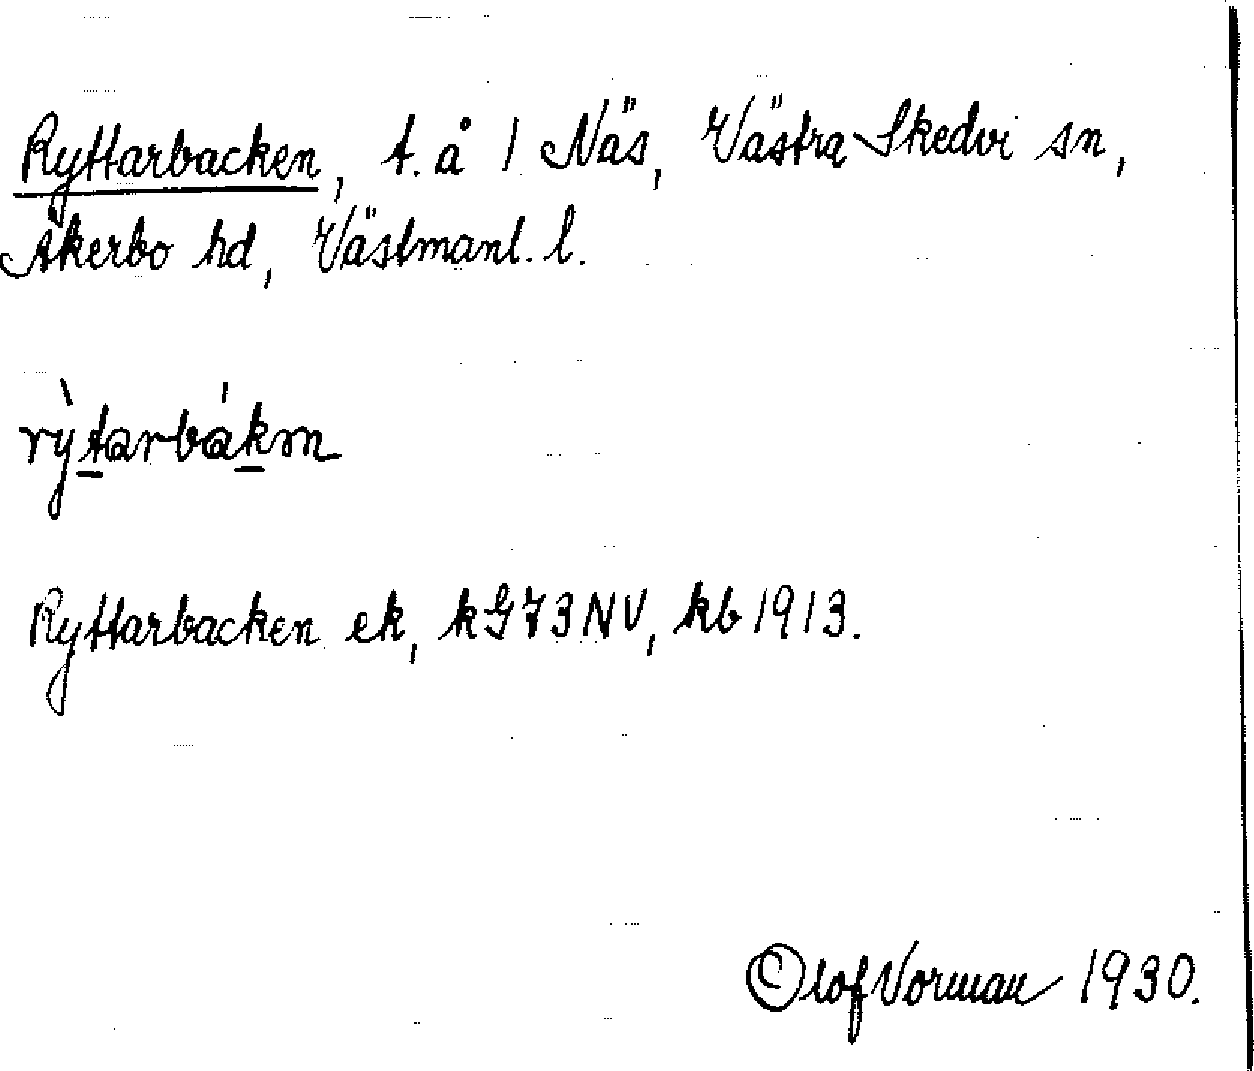 Ryttarbacken, t. å 1 Näs, Västra Skedvi sn,
Åkerbo hd, Västmanl. l.
rỳtarbákm
Ryttarbacken ek, kG73NV, kb 1913.
Olof Vorman 1930.